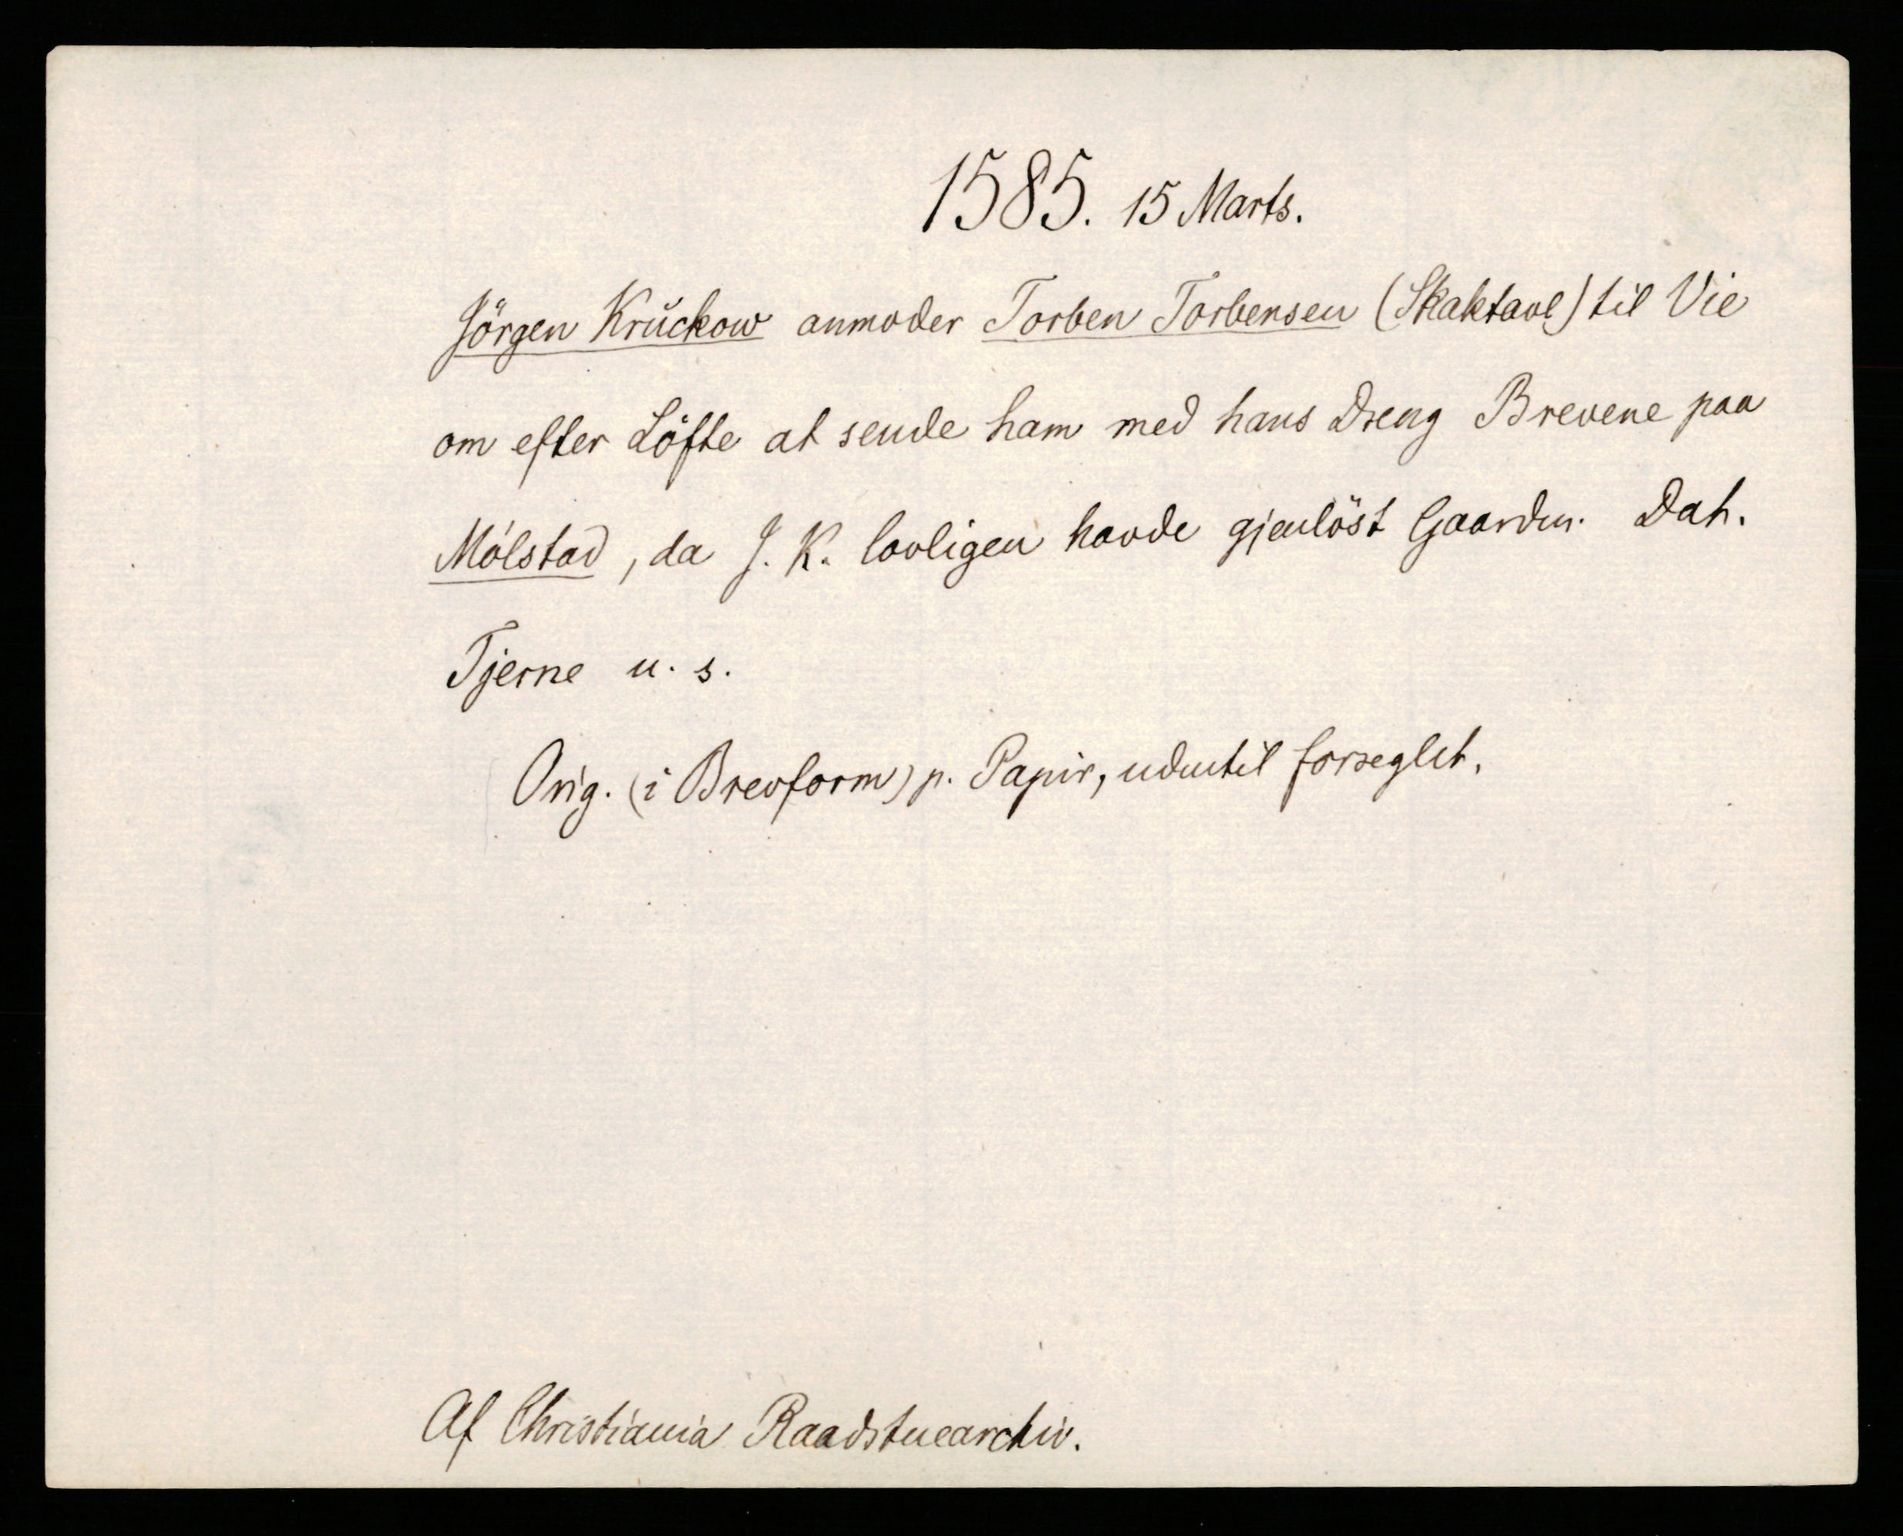 1585. 15 Marts.
Jörgen Krŭckow anmoder Torben Torbensen (Skaktavl) til Vie
om efter Löfte at sende ham med hans Dreng Brevene paa
Mölstad, da J. K. lovligen havde gjenlöst Gaarden. Dat.
Tjerne u. s.
Orig. (i Brevform) p. Papir, udentil forseglet.
Af Christiania Raadstuearchiv.